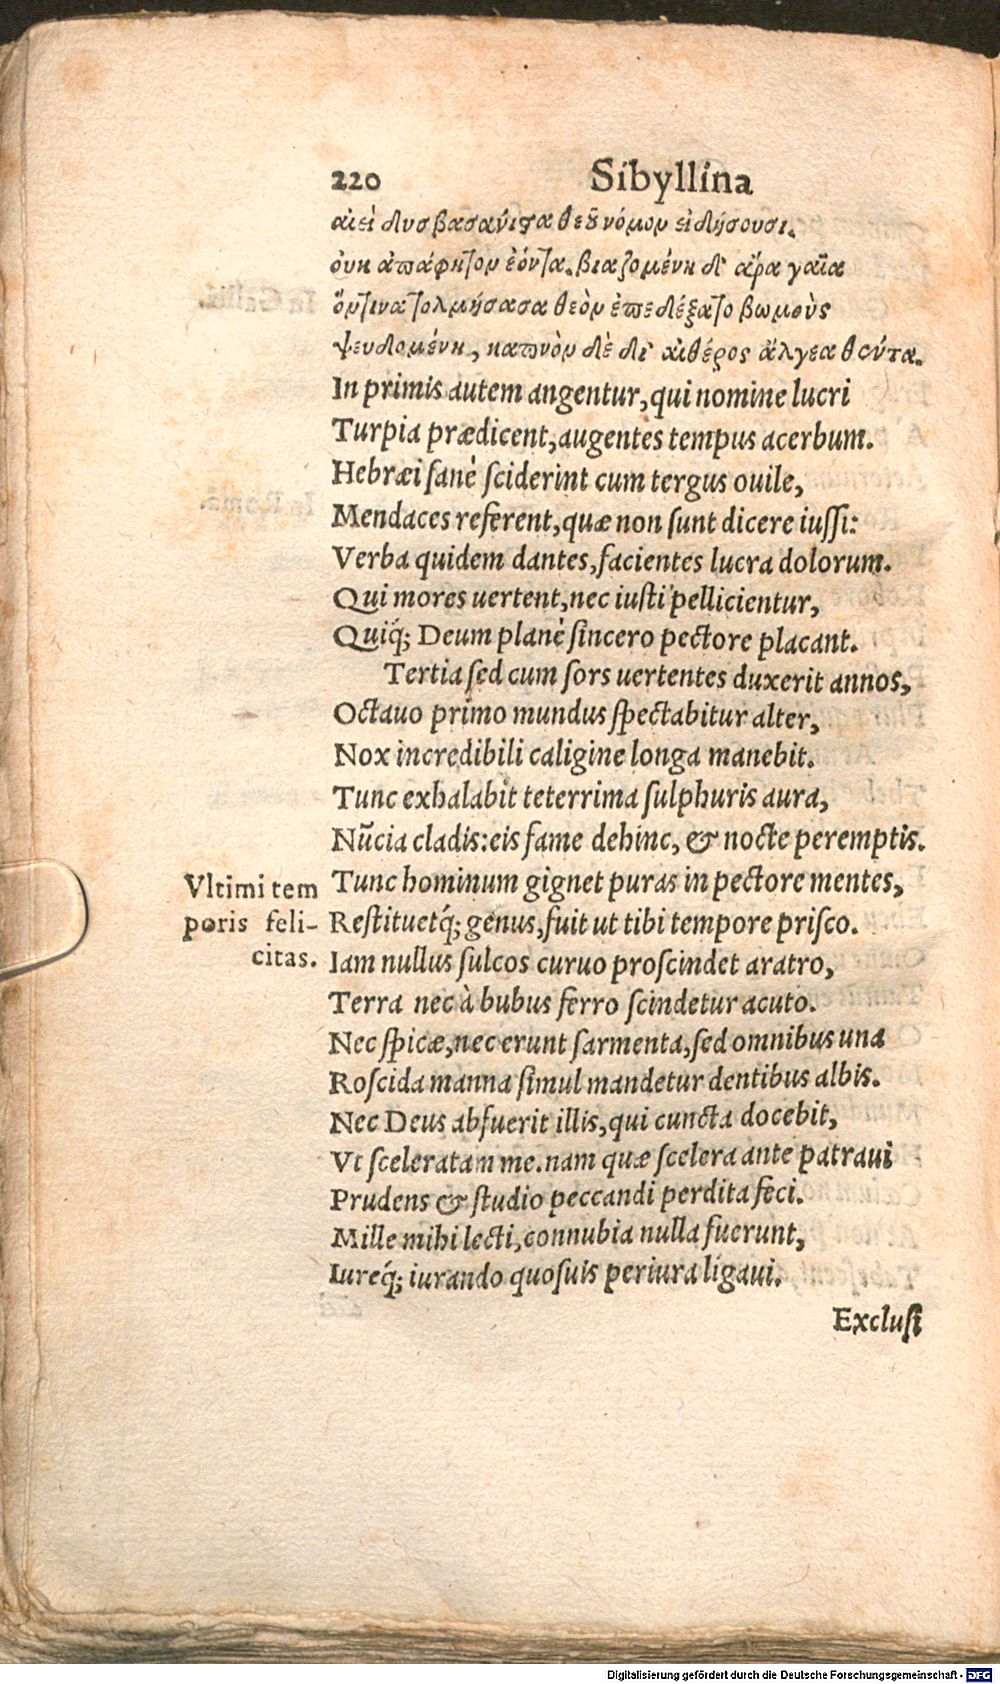 220 Sibyllina
αἰεὶ δυσβασάνιστα θεοῦ νόμον εἰδήσουσι.
οὐκ ἀπάφητον ἐόντα. βιαζομένη δ' ἄρα γαῖα
ὅντινα τολμήσασα θεὸν ἐπεδέξατο βωμοὺς
ψευδομένη, καπνὸν δὲ δι' αἰθέρος ἄλγεα θοῦτα.
In primis autem angentur, qui nomine lucri
Turpia prædicent, augentes tempus acerbum.
Hebræi sanè sciderint cum tergus ouile,
Mendaces referent, quæ non sunt dicere iussi:
Verba quidem dantes, facientes lucra dolorum.
Qui mores uertent, nec iusti pellicientur,
Quiq́; Deum planè sincero pectore placant.
Tertia sed cum sors uertentes duxerit annos,
Octauo primo mundus spectabitur alter,
Nox incredibili caligine longa manebit.
Tunc exhalabit teterrima sulphuris aura,
Nũcia cladis: eis fame dehinc, & nocte peremptis.
Vltimi tem
poris feli-
citas.
Tunc hominum gignet puras in pectore mentes,
Restituetq́; genus, fuit ut tibi tempore prisco.
Iam nullus sulcos curuo proscindet aratro,
Terra nec à bubus ferro scindetur acuto.
Nec spicæ, nec erunt sarmenta, sed omnibus una
Roscida manna simul mandetur dentibus albis.
Nec Deus abfuerit illis, qui cuncta docebit,
Vt sceleratam me. nam quæ scelera ante patraui
Prudens & studio peccandi perdita feci.
Mille mihi lecti, connubia nulla fuerunt,
Iureq́; iurando quosuis periura ligaui.
Exclusi
Digitalisierung gefördert durch die Deutsche Forschungsgemeinschaft - DFG